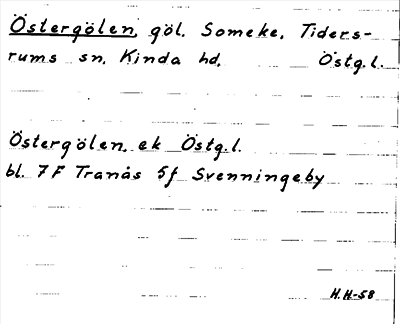 Östergölen, göl. Someke, Tiders-
rums sn, Kinda hd, Östg.l.
Östergölen, ek Östg.l.
bl. 7F Tranås 5f Svenningeby
H.H-58